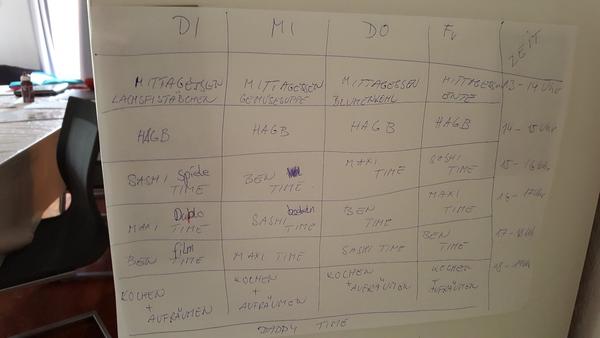 DI MI DO Fr ZEIT
MITTAGESSEN MITTAGESSEN MITTAGESSEN MITTAGESSEN 13-14 Uhr
LACHSFISTÄBCHEN GEMÜSESUPPE BLUMENKOHL ENTE
HAGB HAGB HAGB HAGB 14-15 Uhr
SASHI Spiele TIME BEN TIME MAXI TIME SASHI TIME 15-16 Uhr
MAXI Duplo TIME SASHI basteln TIME BEN TIME MAXI TIME 16-17 Uhr
BEN film TIME MAXI TIME SASHI TIME BEN TIME 17-18 Uhr
KOCHEN KOCHEN KOCHEN KOCHEN 18-19 Uhr
+ + + +
AUFRÄUMEN AUFRÄUMEN AUFRÄUMEN AUFRÄUMEN
DADDY TIME